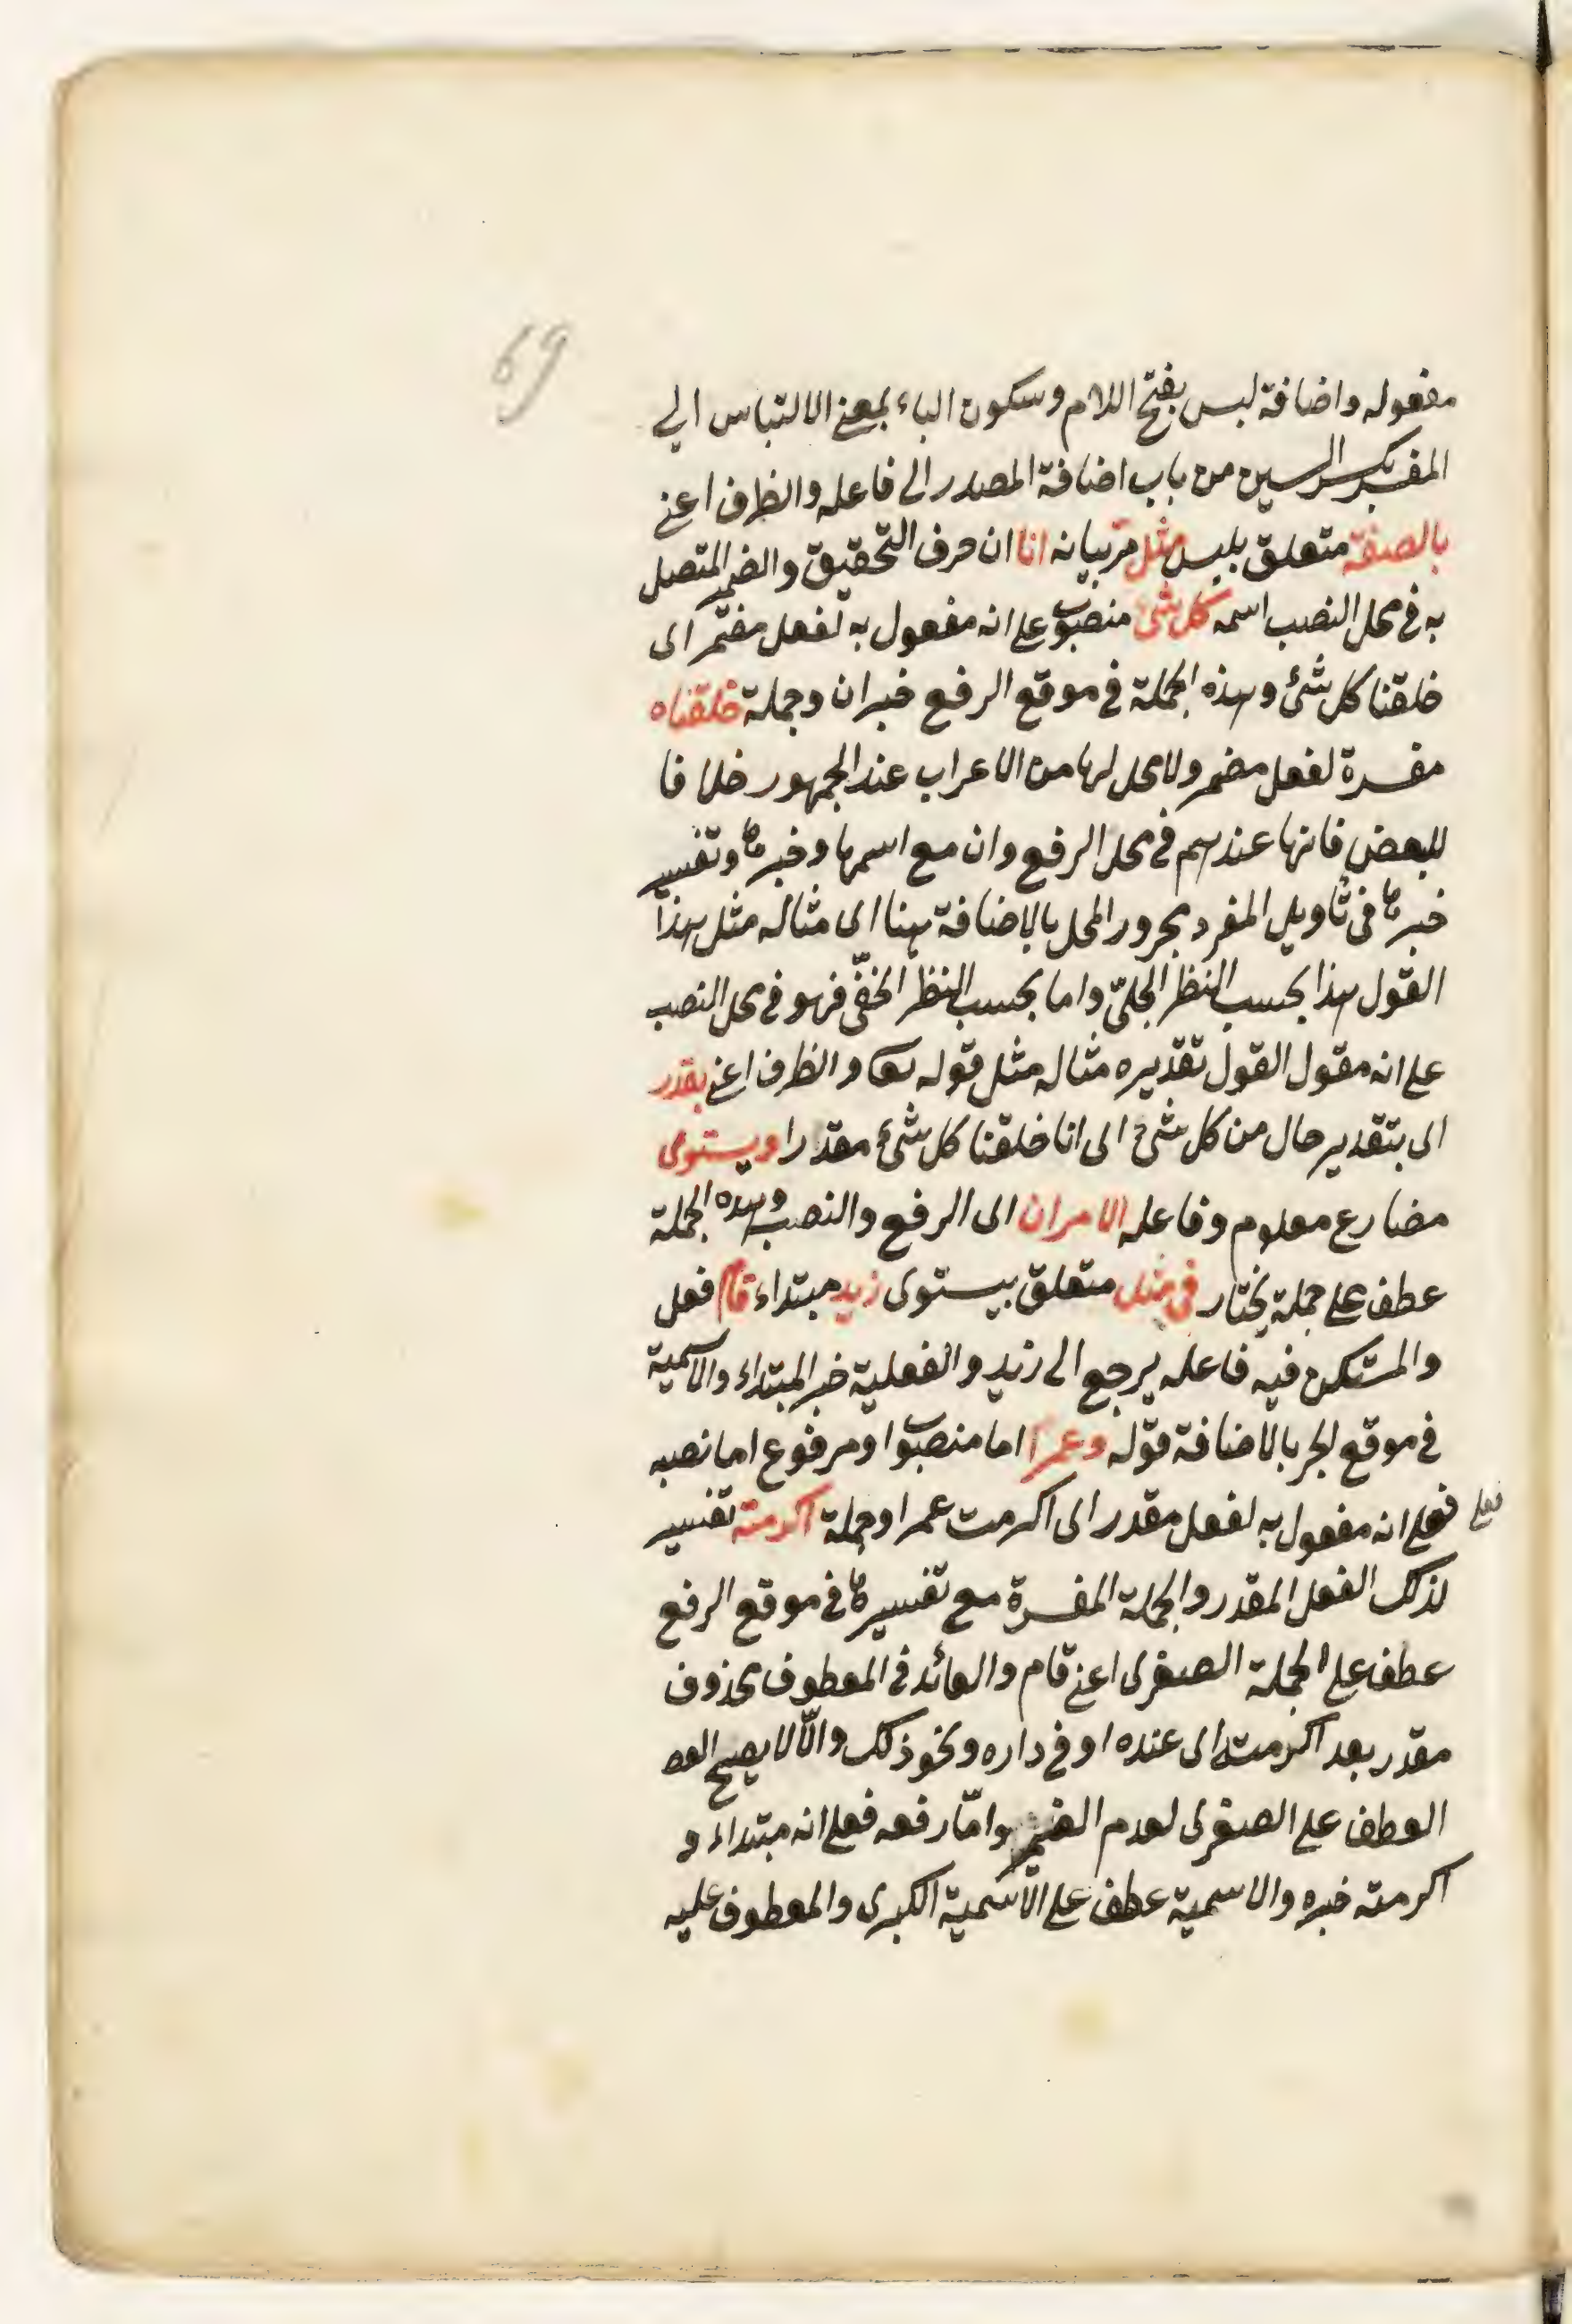 69
مفعوله واضافة لبس بفتح اللام وسكون الباء بمعنى الالتباس الى
المفسر بكسر السين من باب اضافة المصدر الى فاعله والظرف اعنى
بالصفة متعلق بلبس مثل مرّ بيانه انا ان حرف التحقيق والضمير المتصل
به فى محل النصب اسمه كل شئ منصوب على انه مفعول به لفعل مضمر اى
خلقنا كل شئ وهذه الجملة فى موقع الرفع خبر ان وجملة خلقناه
مفسرة لفعل مضمر ولا محل لها من الاعراب عند الجمهور خلافا
للبعض فانها عندهم فى محل الرفع وان مع اسمها وخبرها وتفسير
خبرها فى تأويل المفرد مجرور المحل بالاضافة هنا اى مثاله مثل هذا
القول هذا بحسب النظر الجلىّ واما بحسب النظر الخفىّ فهو فى محل النصب
على انه مقول القول تقديره مثاله مثل قوله تعا والظرف اعنى بقدر
اى بتقدير حال من كل شئ اى انا خلقنا كل شئ مقدرا ويستوى
مضارع معلوم وفاعله الامران اى الرفع والنصب وهذه الجملة
عطف على جملة يختار فى مثل متعلق بيستوى زيد مبتداء قام فعل
والمستكن فيه فاعله يرجع الى زيد والفعلية خبر المبتداء والاسمية
فى موقع الجر بالاضافة قوله وعمرا اما منصوب او مرفوع اما نصبه
فعلى
فعلى انه مفعول به لفعل مقدر اى اكرمت عمرا وجملة اكرمته تفسير
لذلك الفعل المقدر والجملة المفسرة مع تفسيرها فى موقع الرفع
عطف على الجملة الصغرى اعنى قام والعائد فى المعطوف محذوف
مقدر بعد اكرمته اى عنده او فى داره ونحو ذلك والّا لا يصح العط
العطف على الصغرى لعدم الضمير وامّا رفعه فعلى انه مبتداء و
اكرمته خبره والاسمية عطف على الاسمية الكبرى والمعطوف عليه